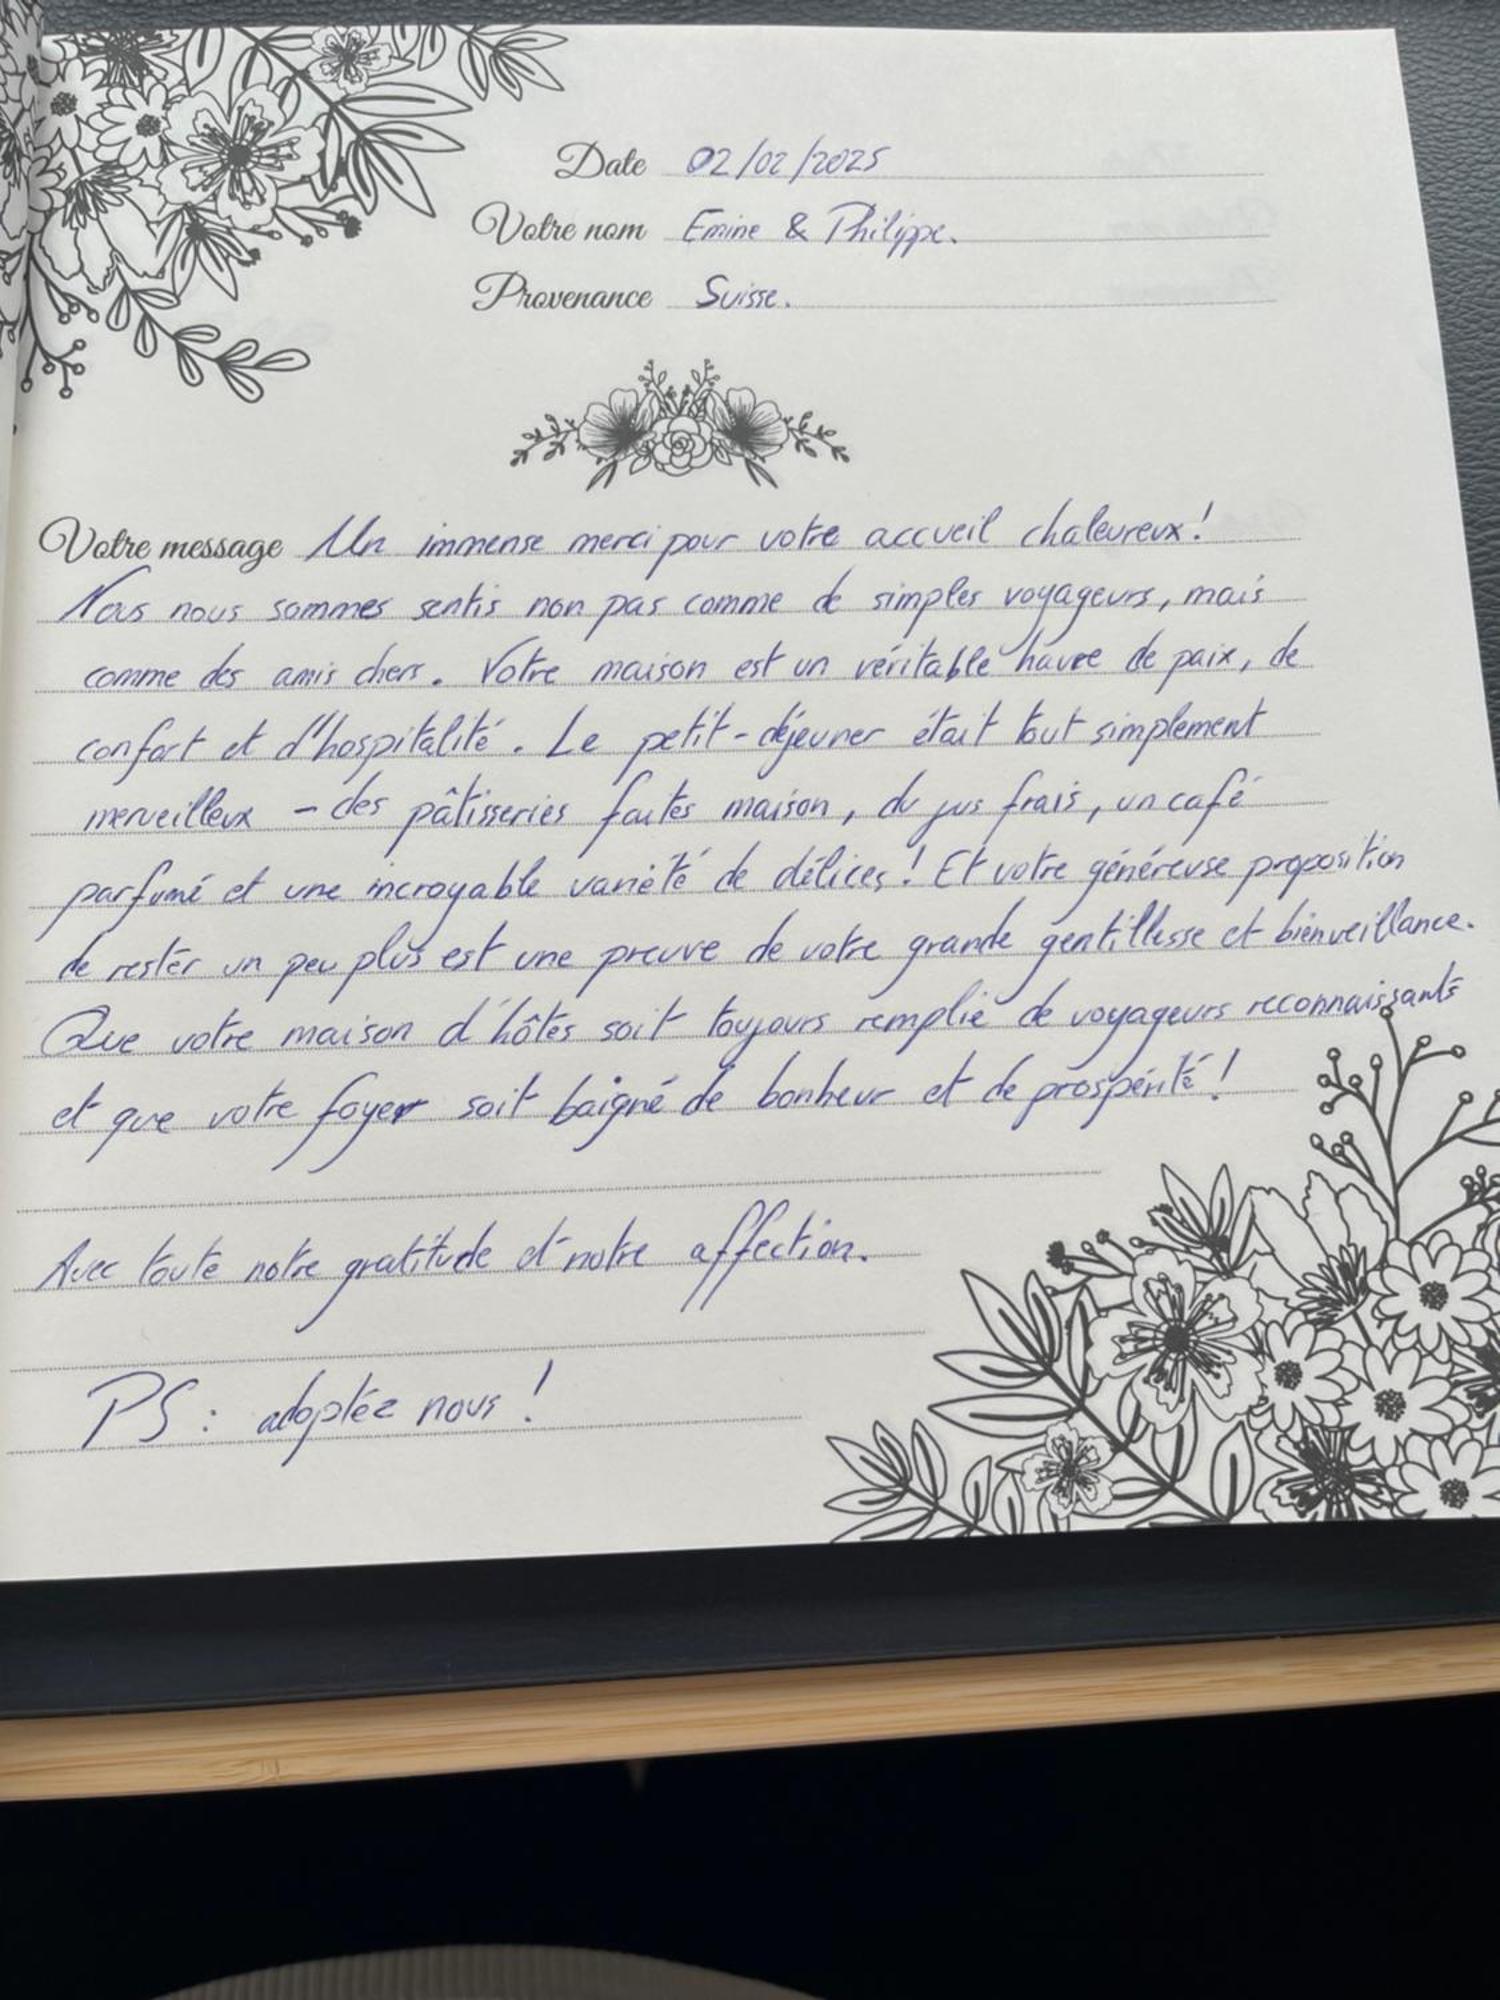 Date 02/02/2025
Votre nom Emine & Philippe.
Provenance Suisse.
Votre message Un immense merci pour votre accueil chaleureux!
Nous nous sommes sentis non pas comme de simples voyageurs, mais
comme des amis chers. Votre maison est un véritable havre de paix, de
confort et d'hospitalité. Le petit-déjeuner était tout simplement
merveilleux - des pâtisseries faites maison, du jus frais, un café
parfumé et une incroyable variété de délices! Et votre généreuse proposition
de rester un peu plus est une preuve de votre grande gentillesse et bienveillance.
Que votre maison d'hôtes soit toujours remplie de voyageurs reconnaissants
et que votre foyer soit baigné de bonheur et de prospérité!
Avec toute notre gratitude et notre affection.
PS: adoptéz nous!